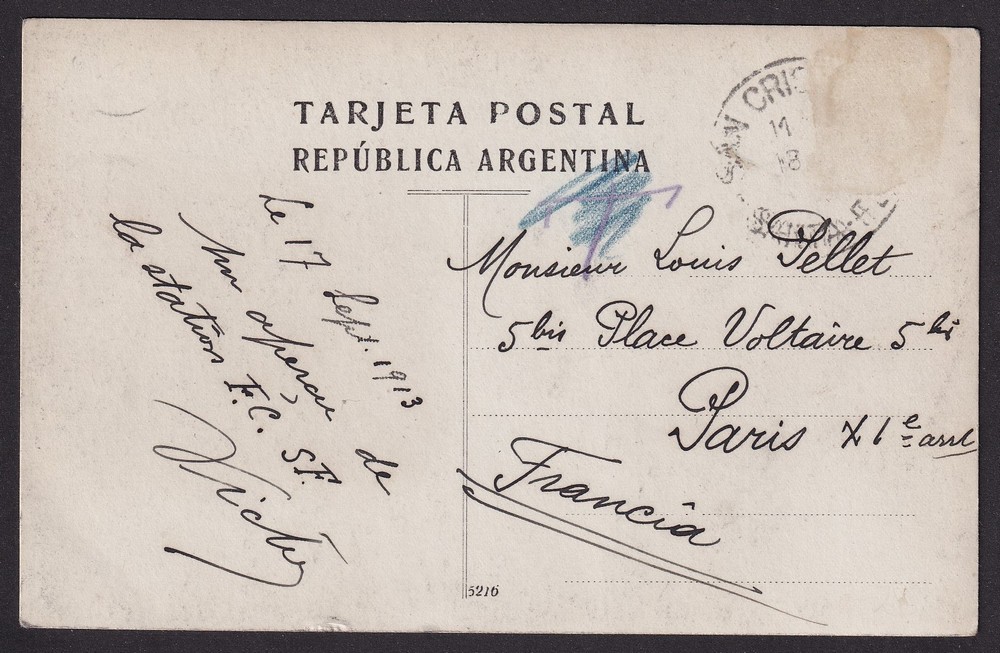 TARJETA POSTAL
REPÚBLICA ARGENTINA
SAN CRIS
11
18
Le 17 Sept. 1913
un aperçu de
la station F.C. SF.
Victor
Monsieur Louis Pellet
5 bis Place Voltaire 5 bis
Paris XIe arrt
Francia
5216